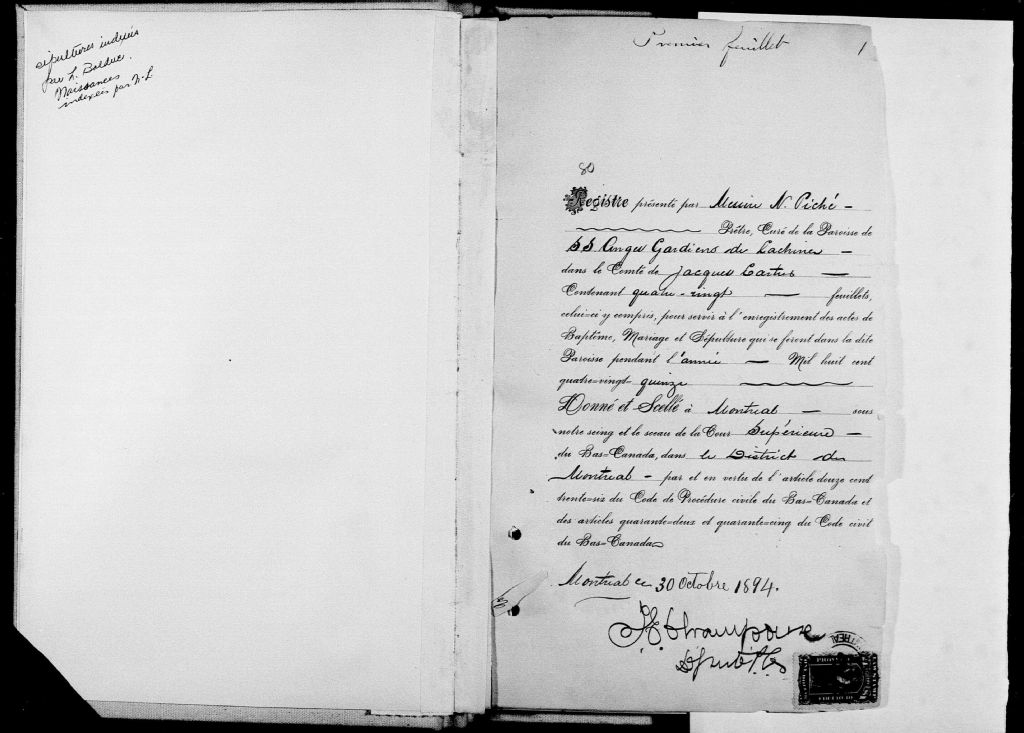 sépultures indexés
par L. Bolduc.
Naissances
indexées par N-L
Premier feuillet 1
80
Registre présenté par Messire N. Piché -
Prêtre, Curé de la Paroisse de
SS Anges Gardiens de Lachine -
dans le Comté de Jacques Cartier -
Contenant quatre-vingt - feuillets,
celui-ci y compris, pour servir à l'enregistrement des actes de
Baptême, Mariage et Sépulture qui se feront dans la dite
Paroisse pendant l'année - Mil huit cent
quatre-vingt-quinze
Donné et Scellé à Montréal - sous
notre seing et le sceau de la Cour Supérieure -
du Bas=Canada, dans le District de
Montréal - par et en vertu de l'article douze cent
trente=six du Code de Procédure civile du Bas=Canada et
des articles quarante=deux et quarante=cinq du Code civil
du Bas=Canada
Montréal ce 30 Octobre 1894.
Champoux